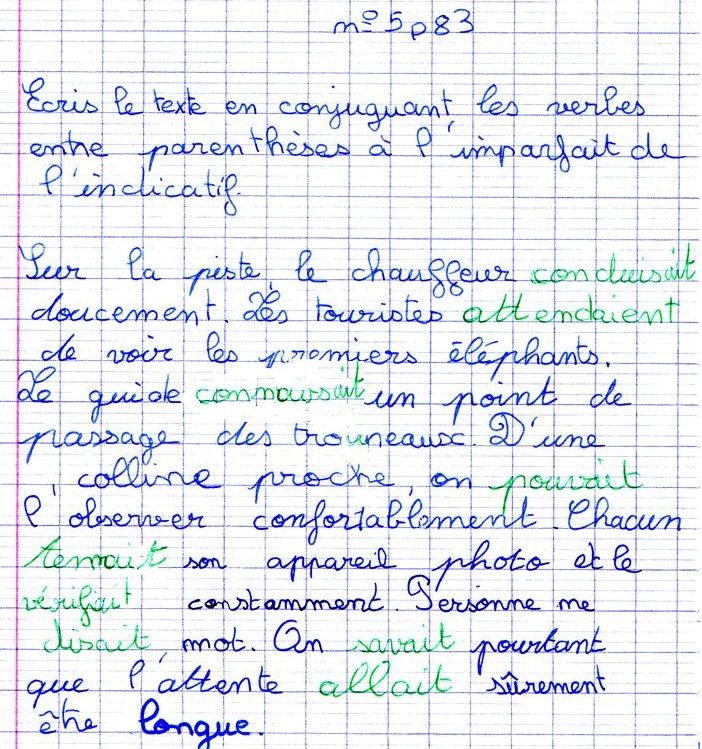 n° 5 p 83
Ecris le texte en conjuguant, les verbes
entre parenthèses à l'imparfait de
l'indicatif.
Sur la piste, le chauffeur conduisait
doucement. Les touristes attendaient
de voir les premiers éléphants.
Le guide connaissait un point de
passage des troupeaux. D'une
colline proche, on pouvait
l'observer confortablement. Chacun
tenait son appareil photo et le
vérifiait constamment. Personne ne
disait, mot. On savait pourtant
que l'attente allait sûrement
être longue.